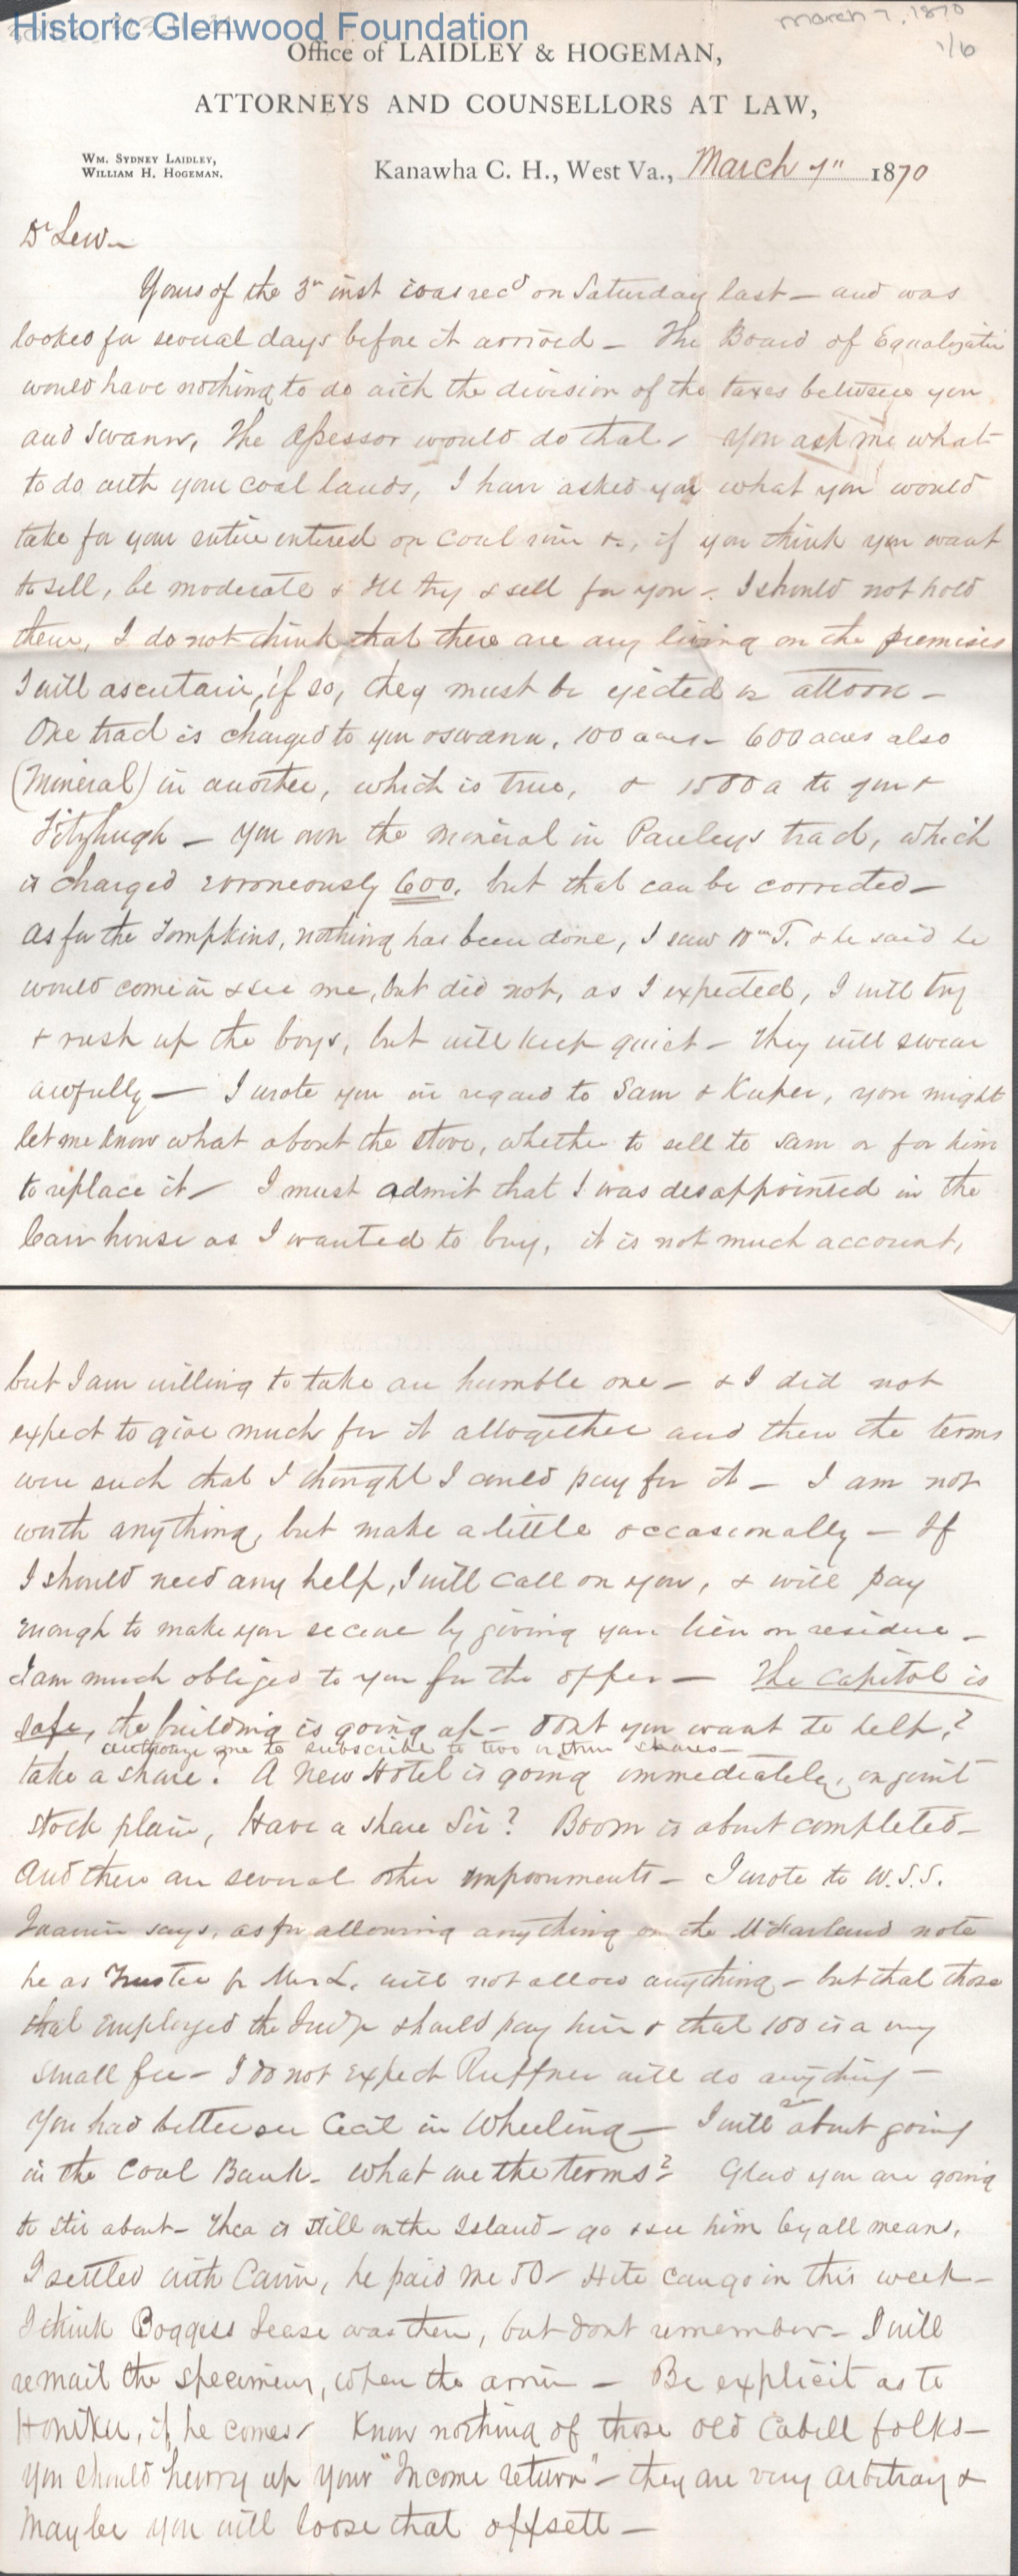 Historic Glenwood Foundation
March 7, 1870
1/6
Office of LAIDLEY & HOGEMAN,
ATTORNEYS AND COUNSELLORS AT LAW,
WM. SYDNEY LAIDLEY,
WILLIAM H. HOGEMAN.
Kanawha C. H., West Va., March 7" 1870
Dr Lew—
Yours of the 3rd inst was recd on Saturday last — and was
looked for several days before it arrived — The Board of Equalization
would have nothing to do with the division of the taxes between you
and Swann, The Assessor would do that — You ask me what
to do with your coal lands, I have asked you what you would
take for your entire interest on coal river &c, if you think you want
to sell, be moderate & Ill try & sell for you — I should not hold
them, I do not think that there are any living on the premises
I will ascertain, if so, they must be ejected or attorn —
One tract is charged to you & Swann, 100 acres — 600 acres also
(Mineral) in another, which is true, & 1500 a to you &
Fitzhugh — You own the mineral in Pauleys tract, which
is charged erroneously 600, but that can be corrected —
As for the Tompkins, nothing has been done, I saw Wm T. & he said he
would come in & see me, but did not, as I expected, I will try
& rush up the boys, but will keep quiet — They will swear
awfully — I wrote you in regard to Sam &, you might
let me know what about the stove, whether to sell to Sam or for him
to replace it — I must admit that I was desappointed in the
house as I wanted to buy, it is not much account,
but I am willing to take an humble one — & I did not
expect to give much for it altogether and then the terms
were such that I thought I could pay for it — I am not
worth anything, but make a little occasionally — If
I should need any help, I will call on you, & will pay
enough to make you secure by giving you lien on residue —
I am much obliged to you for the offer — The Capitol is
safe, the building is going up — Dont you want to help?
authorize me to subscribe to two or three shares —
take a share! A New Hotel is going immediately, on joint
stock plan, Have a share Sir? Boom is about completed —
And there are several other improvements — I wrote to W.S.S.
says, as for allowing anything on the McFarland note
he as Trustee for Mrs L. will not allow anything — but that those
that employed the Judge should pay him & that 100 is a very
small fee — I do not expect Ruffner will do anything —
You had better see Cecil in Wheeling — I will see about going
in the Coal Bank — What are the terms? Glad you are going
to stir about — Thea is still on the Island — go & see him by all means,
I settled with, he paid me 50 — Hite can go in this week —
I think Boggess Lease was then, but dont remember — I will
remail the specimens, when the arrive — Be explicit as to
, if he comes — Know nothing of those old Cabell folks —
You should hurry up your "Income return" — they are very arbitrary &
Maybe you will loose that offsett —